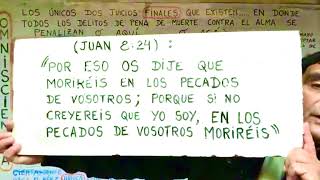 LOS ÚNICOS DOS JUICIOS FINALES QUE EXISTEN.... EN DONDE
TODOS LOS DELITOS DE PENA DE MUERTE CONTRA EL ALMA SE
PENALIZAN O AQUÍ O
(JUAN 8:24) :
"POR ESO OS DIJE QUE
MORIRÉIS EN LOS PECADOS
DE VOSOTROS; PORQUE SI NO
CREYEREIS QUE YO SOY, EN LOS
PECADOS DE VOSOTROS MORIRÉIS"
OMNISCIEN